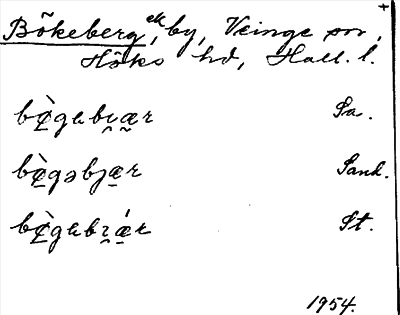 +
Bökeberg, ek by, Veinge sn,
Höks hd, Hall. l.
bø̀gabı̯ær Sa.
bø̀gəbjær Sand.
bø̀gabı̯ǽr St.
1954.